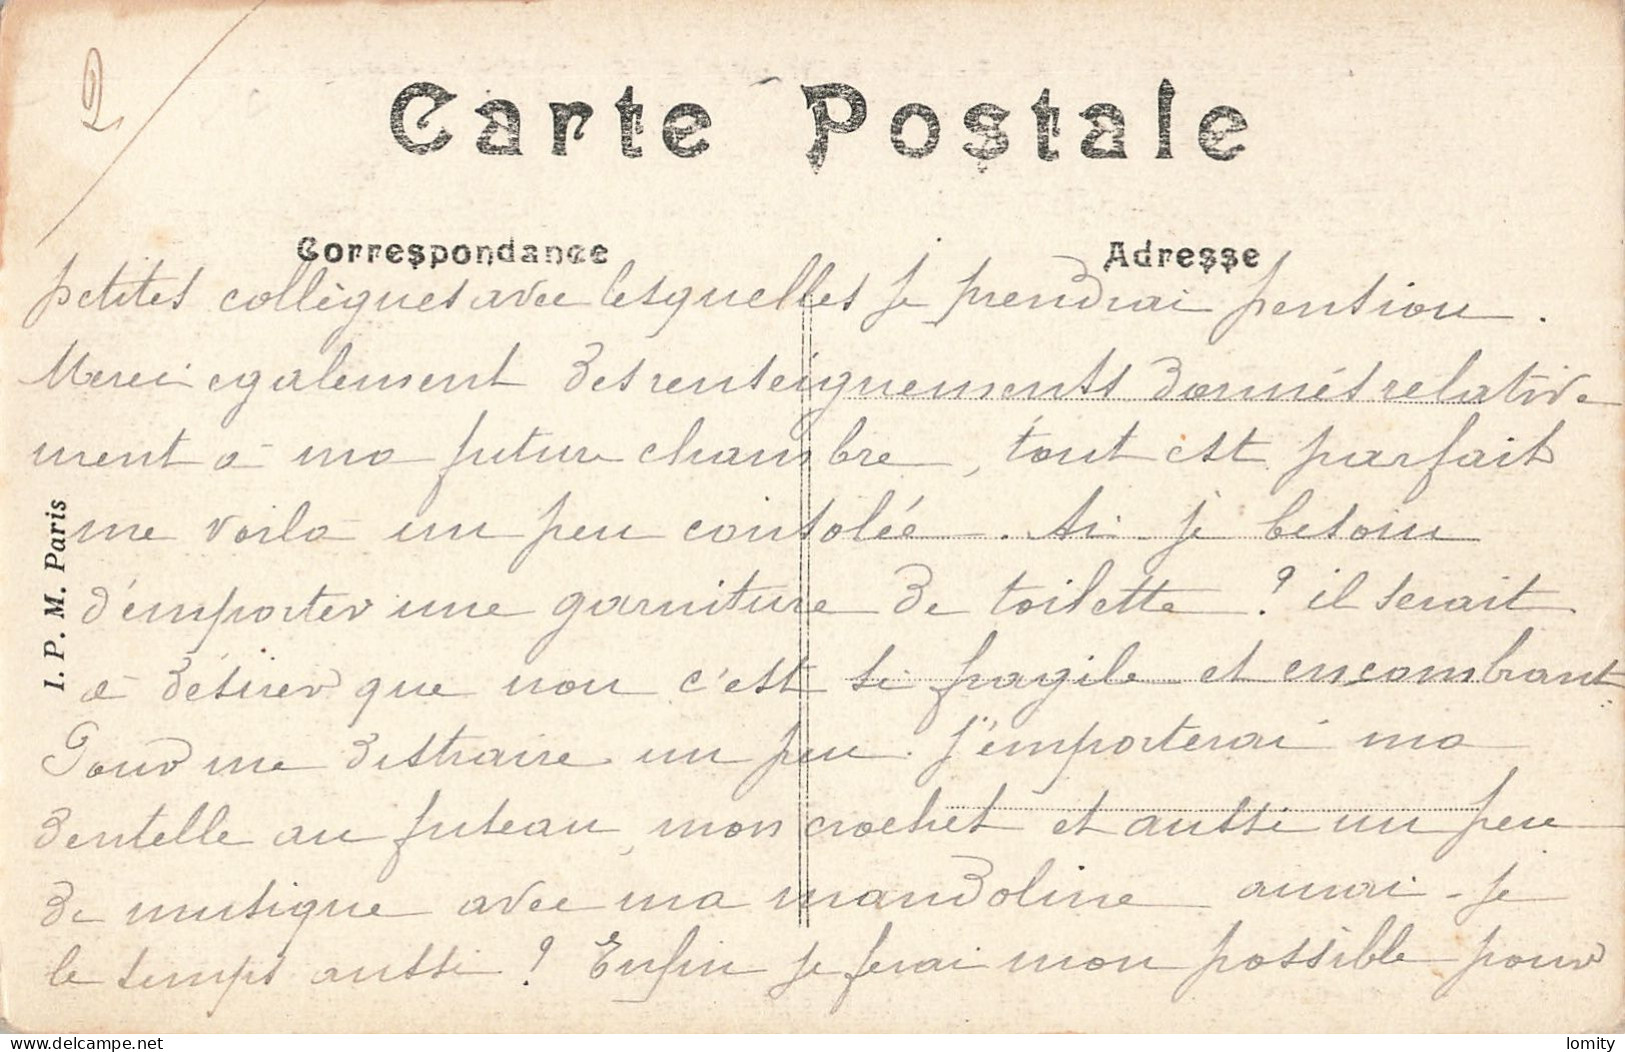 2
Carte Postale
Correspondance
Adresse
petites collègues avec lesquelles je prendrai pension.
Merci également des renseignements donnés relative
ment à ma future chambre, tout est parfait
me voilà un peu consolée. Ai-je besoin
d'emporter une garniture de toilette ? il serait
à désirer que non c'est si fragile et encombrant
Pour me distraire un peu. j'emporterai ma
dentelle au fuseau, mon crochet et aussi un peu
de musique avec ma mandoline aurai-je
le temps aussi ? Enfin je ferai mon possible pour
I. P. M. Paris
delcampe.net
lomity